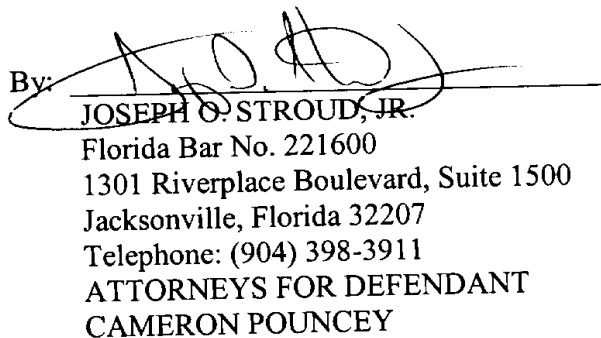 By:
JOSEPH O. STROUD, JR.
Florida Bar No. 221600
1301 Riverplace Boulevard, Suite 1500
Jacksonville, Florida 32207
Telephone: (904) 398-3911
ATTORNEYS FOR DEFENDANT
CAMERON POUNCEY